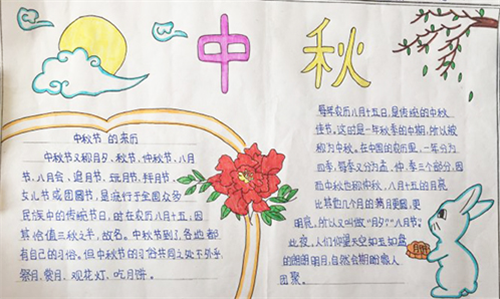 中秋
中秋节的来历
中秋节又称月夕、秋节、仲秋节、八月
节、八月会、追月节、玩月节、拜月节、
女儿节或团圆节，是流行于全国众多
民族中的传统节日，时在农历八月十五，因
其恰值三秋之半，故名。中秋节到了，各地都
有自己的习俗。但中秋节的习俗共同之处不外乎
祭月、赏月、观花灯、吃月饼。
每年农历八月十五日，是传统的中秋
佳节。这时是一年秋季的中期，所以被
称为中秋。在中国的农历里，一年分为
四季，每季又分为孟、仲、季三个部分，因
而中秋也称仲秋。八月十五的月亮
比其他几个月的满月更圆，更
明亮，所以又叫做“月夕”“八月节”。
此夜，人们仰望天空如玉如盘
的朗朗明月，自然会期盼家人
团聚。